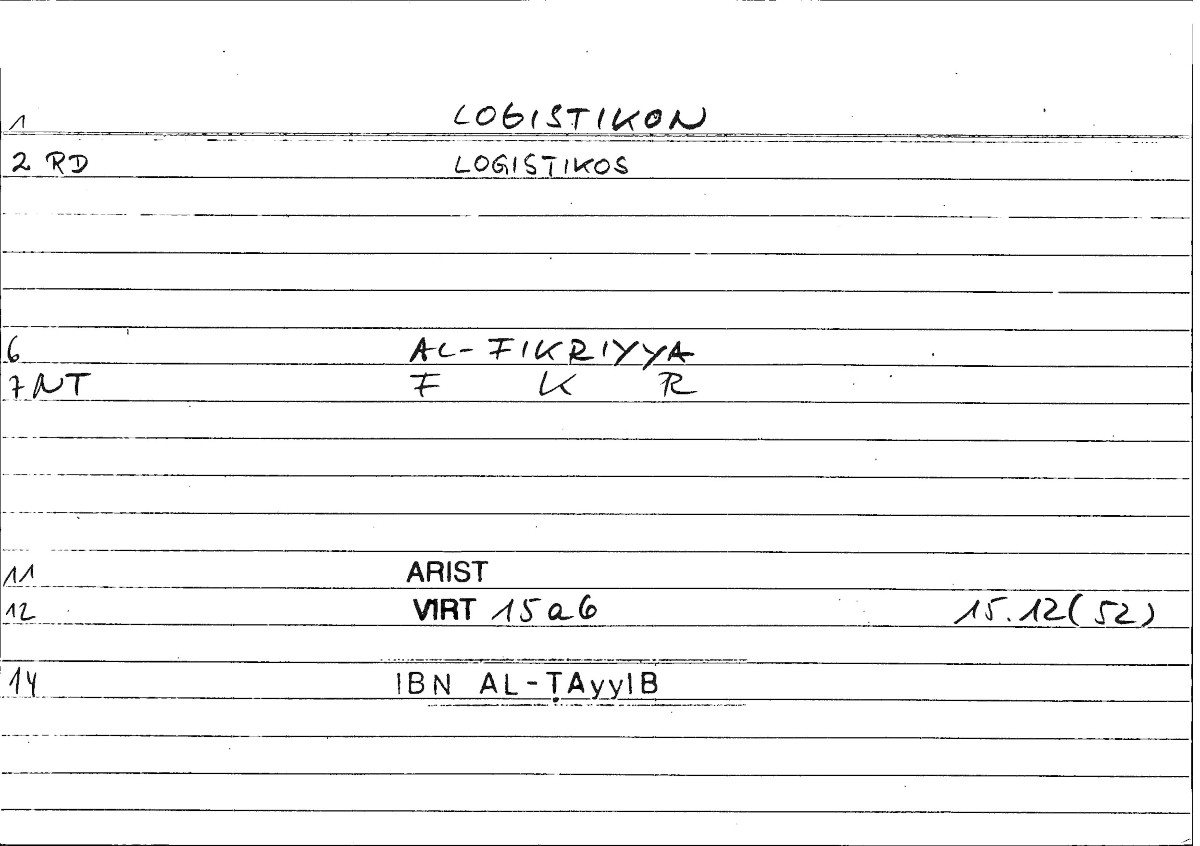 1 LOGISTIKON
2 RD LOGISTIKOS
6 AL-FIKRIYYA
7 NT F K R
11 ARIST
12 VIRT 15a6 15.12(52)
14 IBN AL-ṬAyyIB